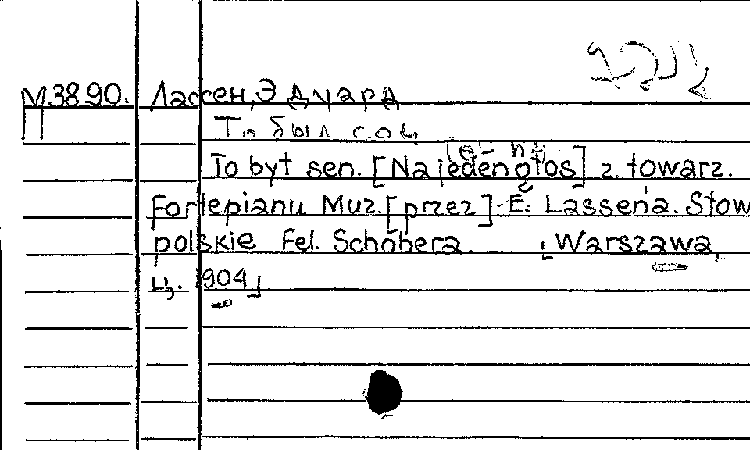 М.38.90. Лассен, Эдуард
П То был сон.
[e-hi]
To był sen. [Na jeden głos] z towarz.
fortepianu Muz. [przez] E. Lassena. Słow
polskie Fel. Schobera. [Warszawa,
ц. 1904]